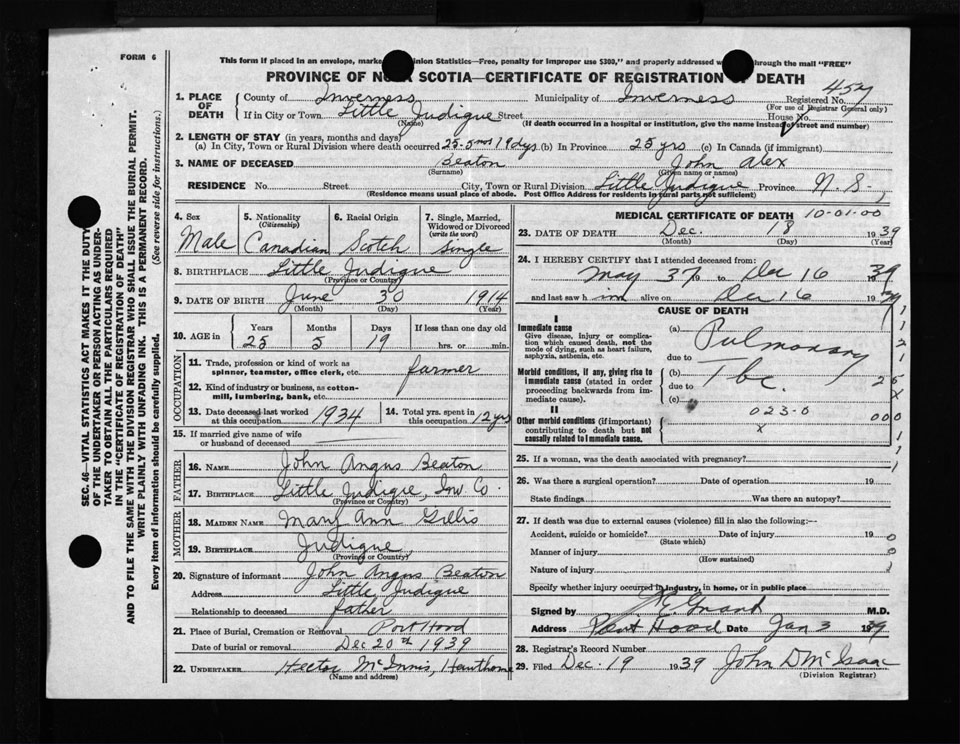 FORM 6
This form if placed in an envelope, marke nion Statistics—Free, penalty for improper use $300," and properly addressed w through the mail "FREE"
PROVINCE OF NO A SCOTIA—CERTIFICATE OF REGISTRATION F DEATH
1. PLACE OF DEATH
County of Inverness Municipality of Inverness Registered No. 457
(For use of Registrar General only)
If in City or Town Little Judique Street House No.
(Name) (If death occurred in a hospital or institution, give the name instead of street and number)
2. LENGTH OF STAY (in years, months and days)
(a) In City, Town or Rural Division where death occurred 25-5 mos 19 dys (b) In Province 25 yrs (c) In Canada (if immigrant)
3. NAME OF DECEASED Beaton John Alex
(Surname) (Given name or names)
RESIDENCE No. Street City, Town or Rural Division Little Judique Province N. S.
(Residence means usual place of abode. Post Office Address for residents in rural parts not sufficient)
4. Sex Male
5. Nationality (Citizenship) Canadian
6. Racial Origin Scotch
7. Single, Married, Widowed or Divorced (write the word) Single
8. BIRTHPLACE Little Judique
(Province or Country)
9. DATE OF BIRTH June 30 1914
(Month) (Day) (Year)
10. AGE in Years Months Days If less than one day old
25 5 19 hrs. or min.
OCCUPATION
11. Trade, profession or kind of work as spinner, teamster, office clerk, etc. farmer
12. Kind of industry or business, as cotton-mill, lumbering, bank, etc.
13. Date deceased last worked at this occupation 1934
14. Total yrs. spent in this occupation 12 yrs
15. If married give name of wife or husband of deceased
FATHER
16. NAME John Angus Beaton
17. BIRTHPLACE Little Judique, Inv. Co.
(Province or Country)
MOTHER
18. MAIDEN NAME Mary Ann Gillis
19. BIRTHPLACE Judique
(Province or Country)
20. Signature of informant John Angus Beaton
Address Little Judique
Relationship to deceased father
21. Place of Burial, Cremation or Removal Port Hood
Date of burial or removal Dec 20th 1939
22. UNDERTAKER Hector McInnis, Hawthorne
(Name and address)
MEDICAL CERTIFICATE OF DEATH 10-01-00
23. DATE OF DEATH Dec. 18 1939
(Month) (Day) (Year)
24. I HEREBY CERTIFY that I attended deceased from:
May 37 19 to Dec 16 1939
and last saw h im alive on Dec 16 1939
CAUSE OF DEATH
I
Immediate cause
Give disease, injury or complication which caused death, not the mode of dying, such as heart failure, asphyxia, asthenia, etc.
(a) Pulmonary
due to
Morbid conditions, if any, giving rise to immediate cause (stated in order proceeding backwards from immediate cause).
(b) Tbc.
due to
(c)
II
Other morbid conditions (if important) contributing to death but not causally related to immediate cause.
023-0
x
1121
25
X
000
25. If a woman, was the death associated with pregnancy?
26. Was there a surgical operation? Date of operation 19
State findings Was there an autopsy?
27. If death was due to external causes (violence) fill in also the following:—
Accident, suicide or homicide? Date of injury 19
(State which)
Manner of injury
(How sustained)
Nature of injury
Specify whether injury occurred in industry, in home, or in public place
Signed by M.D.
Address Port Hood Date Jan 3 19
28. Registrar's Record Number
29. Filed Dec. 19 1939 John D McIsaac
(Division Registrar)
SEC. 46—VITAL STATISTICS ACT MAKES IT THE DUTY
OF THE UNDERTAKER OR PERSON ACTING AS UNDER-
TAKER TO OBTAIN ALL THE PARTICULARS REQUIRED
IN THE "CERTIFICATE OF REGISTRATION OF DEATH"
AND TO FILE THE SAME WITH THE DIVISION REGISTRAR WHO SHALL ISSUE THE BURIAL PERMIT.
WRITE PLAINLY WITH UNFADING INK. THIS IS A PERMANENT RECORD.
Every item of information should be carefully supplied. (See reverse side for instructions.)